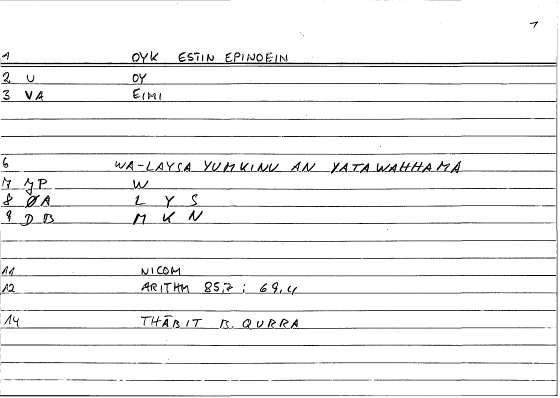 1
1 OYK ESTIN EPINOEIN
2 U OY
3 VA EIMI
6 WA-LAYSA YUMKINU AN YATAWAHHAMA
7 JP W
8 ØA L Y S
9 D B M K N
11 NICOM
12 ARITHM 85,7 : 69,4
14 THĀBIT B. QURRA